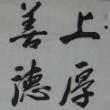 上善
厚德